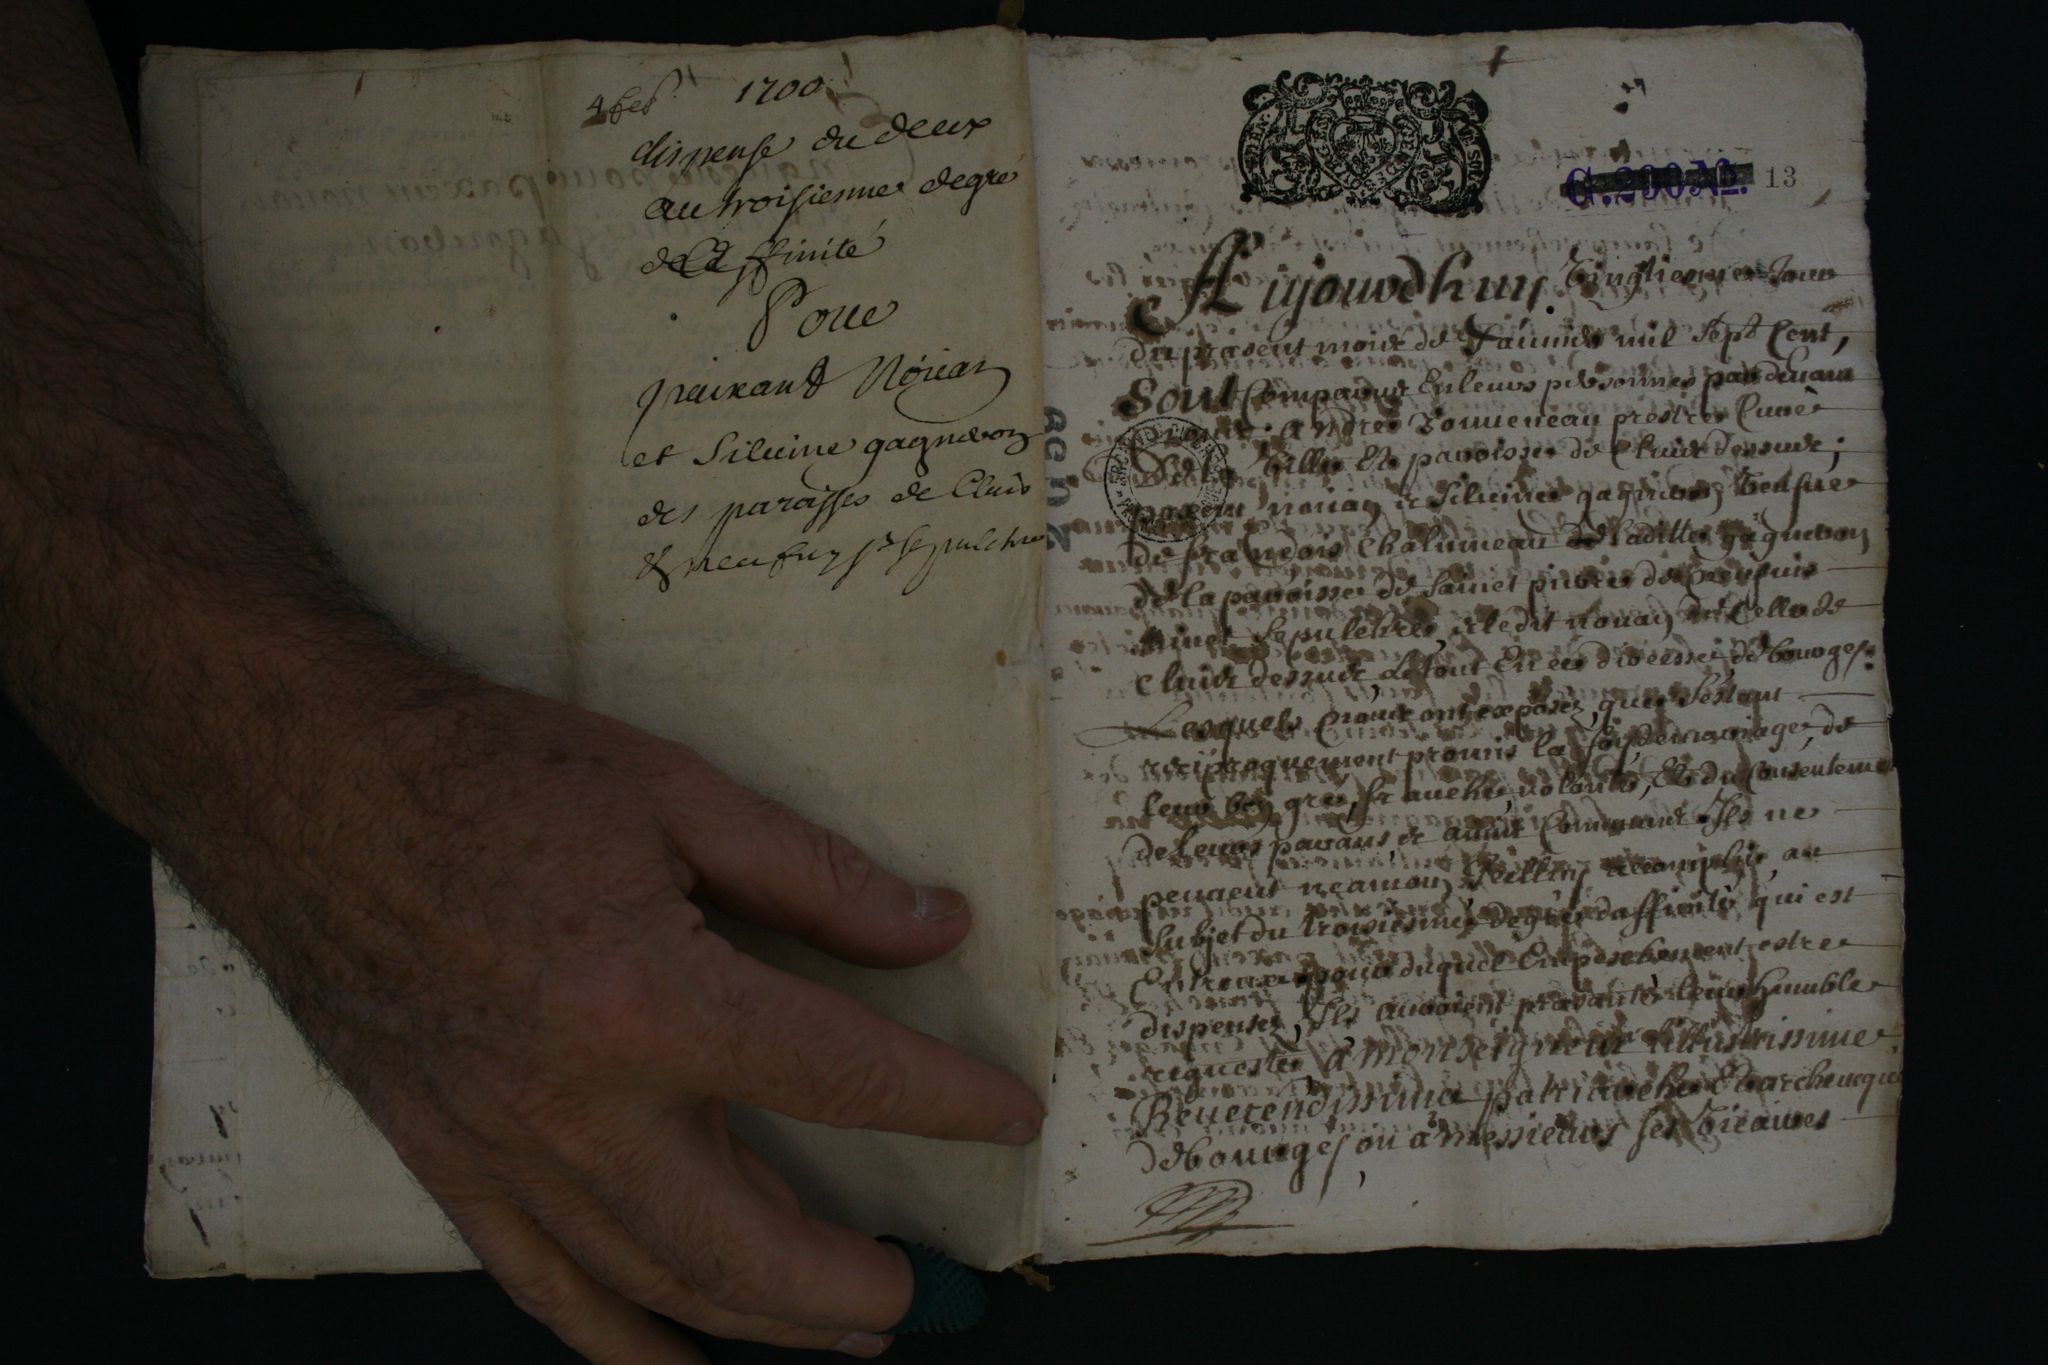 4 feb. 1700
dispense du deux
au troisienne degré
de L'affinité
Pour
paixant Nöuan
et Siluine gagneron
des paroisses de Cluis
& neufuy st sepulchre
G. 200 No. 13
Aujourdhuy Vingtiesme Jour
du present mois de Januier mil sept Cent,
Sont Comparus En leurs personnes par deuant
Nous André prestre Curé
de la Ville Et parroisse de Cluis dessus;
paxent nouan & Siluine gagneron Veufue
de françois Chalumeau laditte gagneron
de la parroisse de Sainct pierre de neufuis
sainct Sepulchre, & ledit nouan de Celle de
Cluis dessus, Le tout En ce diocesse de bourges.
Lesquels nous ont exposés, que s'estant
reciproquement promis la foy de mariage, de
leur bon gré, franche volonté, Et du Consenteme
de leurs parans, & amis Communs Ils ne
peuuent neamoin Icelluy accomplir, au
subjet du troisiesme degré daffinité qui est
Entreaux, pour duquel Empeschement estre
dispensez, Ils auroient presanté leur humble
requeste, à monseigneur lillustrissime
Reuerendissime patriarche Et archeuesque
de bourges ou à messieurs ses Vicaires